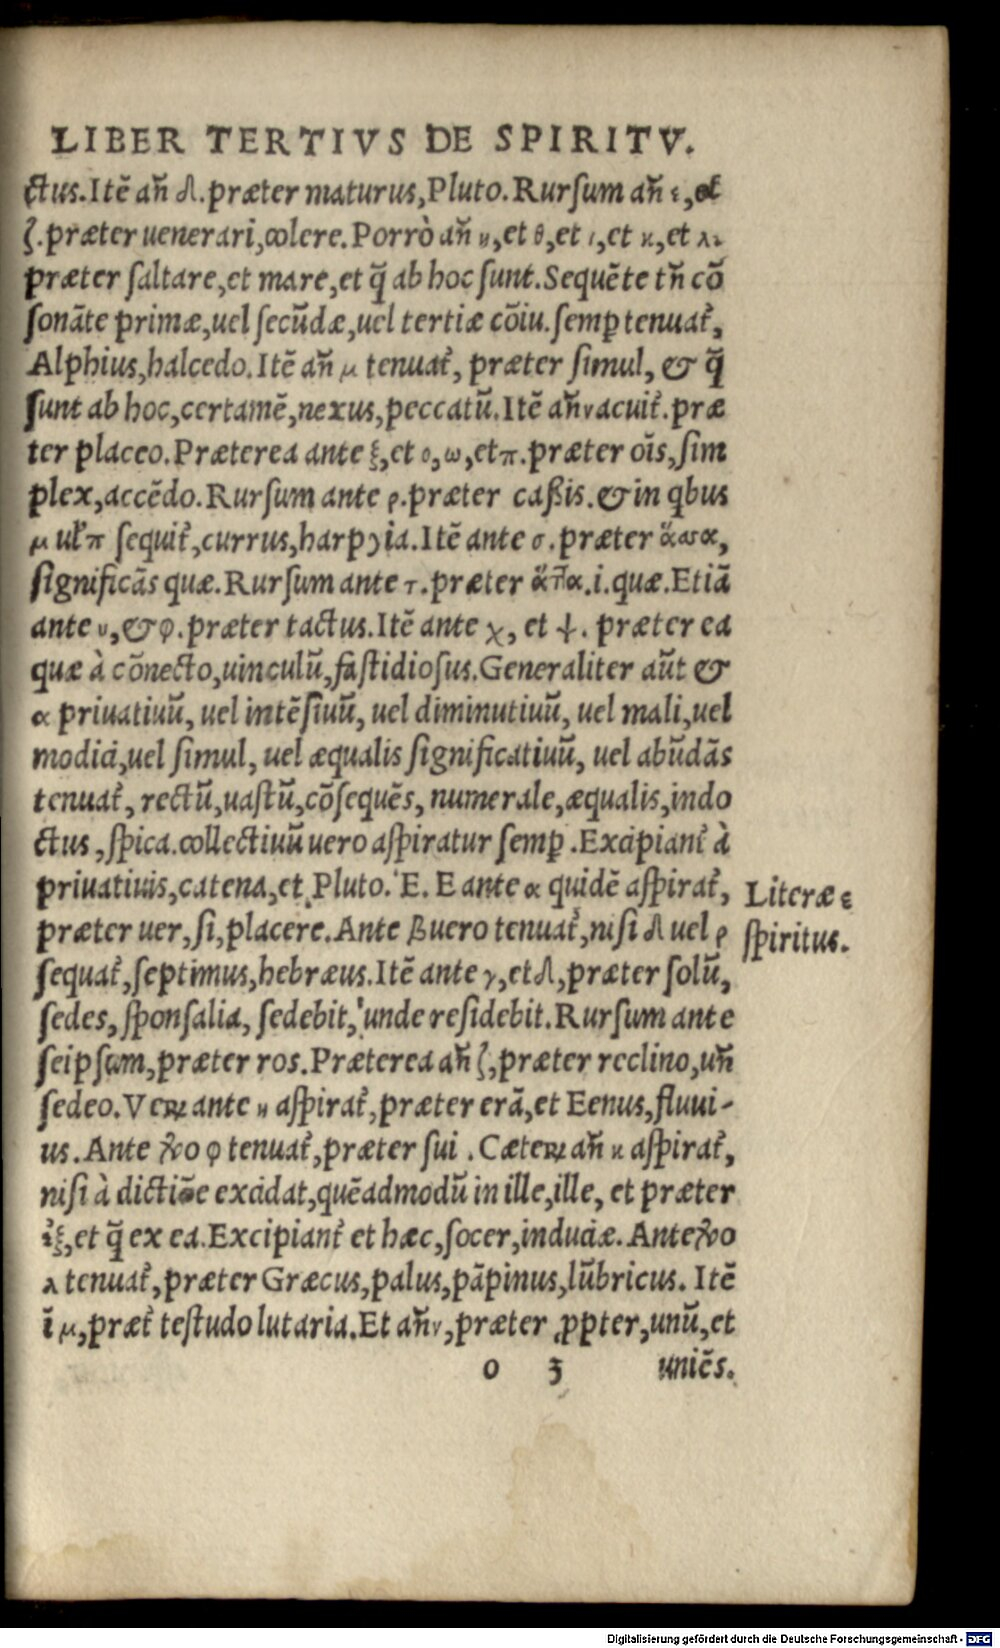 LIBER TERTIVS DE SPIRITV.
ctus.Itē añ δ.præter maturus,Pluto.Rursum añ ε,et
ζ.præter uenerari,colere.Porrò añ η,et θ,et ι,et κ,et λ.
præter saltare,et mare,et q̃ ab hoc sunt.Sequēte tñ cō
sonāte primæ,uel secūdæ,uel tertiæ cōiu.semp tenuat̃,
Alphius,halcedo.Itē añ μ tenuat̃, præter simul, & q̃
sunt ab hoc,certamē,nexus,peccatū.Itē añ ν acuit̃.præ
ter placeo.Præterea ante ξ,et ο,ω,et π.præter oīs,sim
plex,accēdo.Rursum ante ρ.præter caßis.& in qbus
μ uł π sequit̃,currus,harpyia.Itē ante σ.præter ἅσσα,
significās quæ.Rursum ante τ.præter ἅττα.i.quæ.Etiā
ante υ,& φ.præter tactus.Itē ante χ, et ψ. præter ea
quæ à cōnecto,uinculū,fastidiosus.Generaliter aūt &
α priuatiuū, uel intēsiuū, uel diminutiuū, uel mali,uel
modici,uel simul, uel æqualis significatiuū, uel abūdās
tenuat̃, rectū,uastū,cōsequēs, numerale,æqualis,indo
ctus,spica.collectiuū uero aspiratur semp.Excipiant̃ à
priuatiuis,catena,et Pluto. E. E ante α quidē aspirat̃,
præter uer,si,placere.Ante β uero tenuat̃,nisi δ uel ρ
sequat̃,septimus,hebræus.Itē ante γ,et δ,præter solū,
sedes,sponsalia, sedebit,unde residebit.Rursum ante
seipsam,præter ros.Præterea añ ζ,præter reclino,uñ
sedeo.Veꝝ ante η aspirat̃,præter erā,et Eenus,fluui-
us.Ante φ tenuat̃,præter sui.Cæteꝝ añ κ aspirat̃,
nisi à dictiōe excidat,quēadmodū in ille,ille, et præter
ἓξ,et q̃ ex ea.Excipiant̃ et hæc,socer,induciæ.Ante
λ tenuat̃,præter Græcus,palus,pāpinus,lūbricus. Itē
ī μ,præt̃ testudo lutaria.Et añ ν,præter ꝓpter,unū,et
o 3 uniēs.
Literæ ε
spiritus.
Digitalisierung gefördert durch die Deutsche Forschungsgemeinschaft - DFG